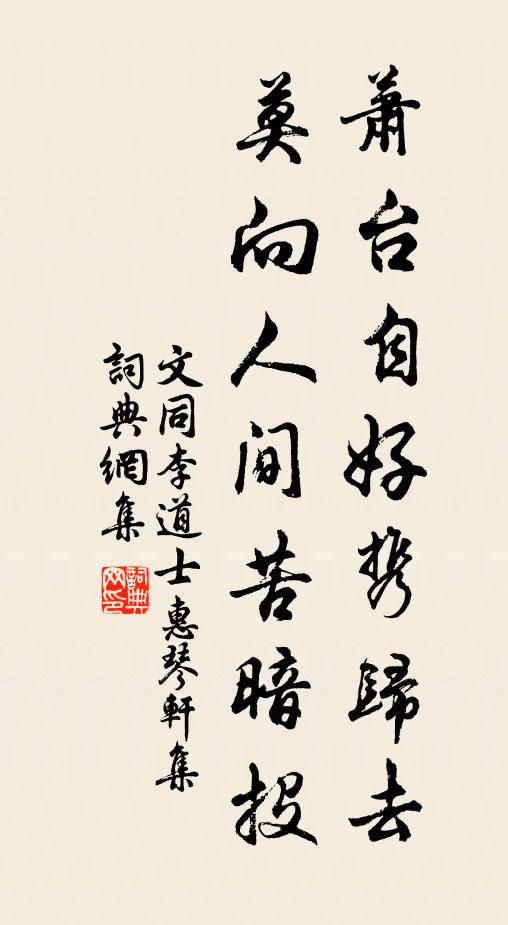 蕭台自好携歸去
莫向人間苦暗投
文同李道士惠琴軒集
詞典網集
詞典
网印